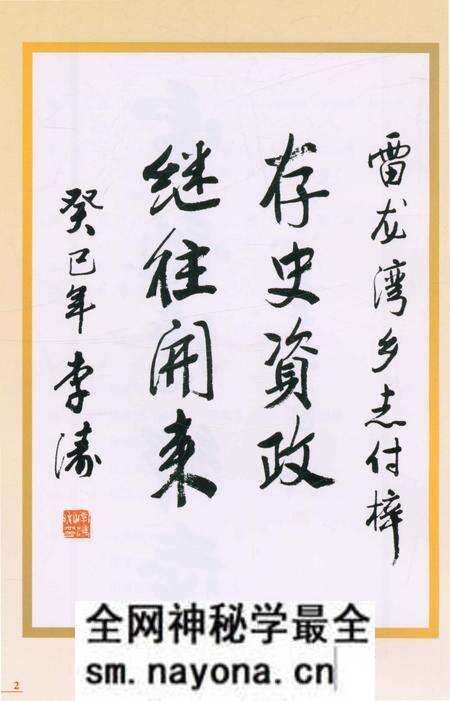 雷龙湾乡志付梓
存史資政
继往開来
癸巳年 李涛
全网神秘学最全
sm.nayona.cn
2